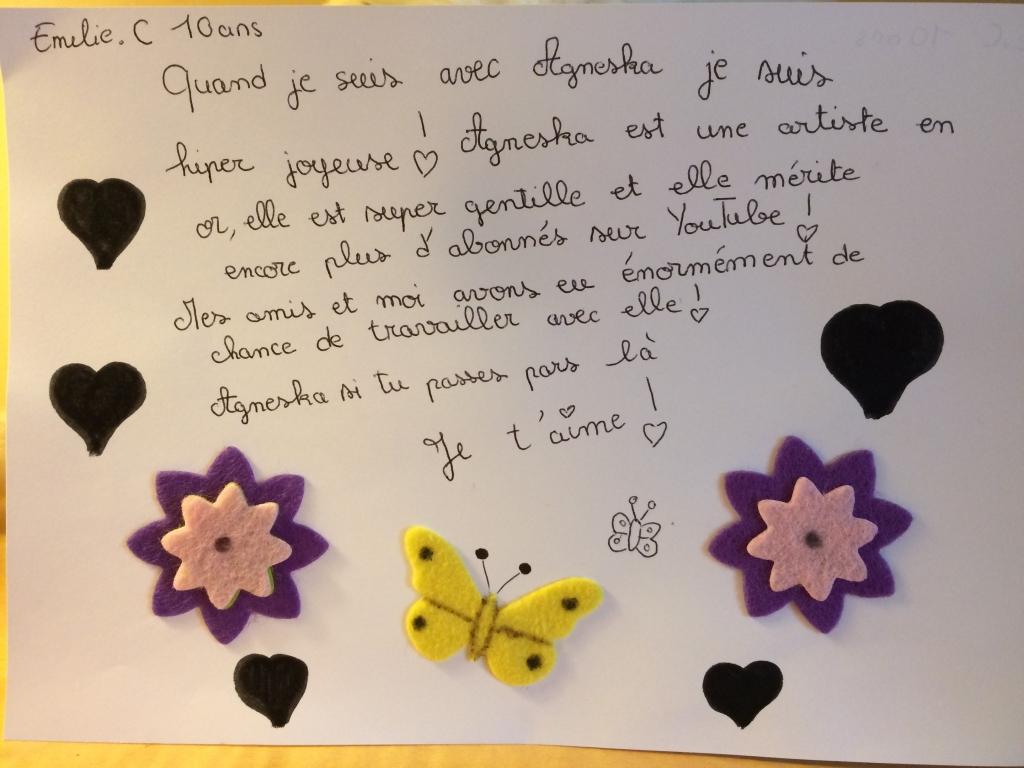 Emelie. C 10 ans
Quand je suis avec Agneska je suis
hiper joyeuse ! Agneska est une artiste en
or, elle est super gentille et elle mérite
encore plus d'abonnés sur YouTube !
Mes amis et moi avons eu énormément de
chance de travailler avec elle !
Agneska si tu passes pars là
Je t'aime !